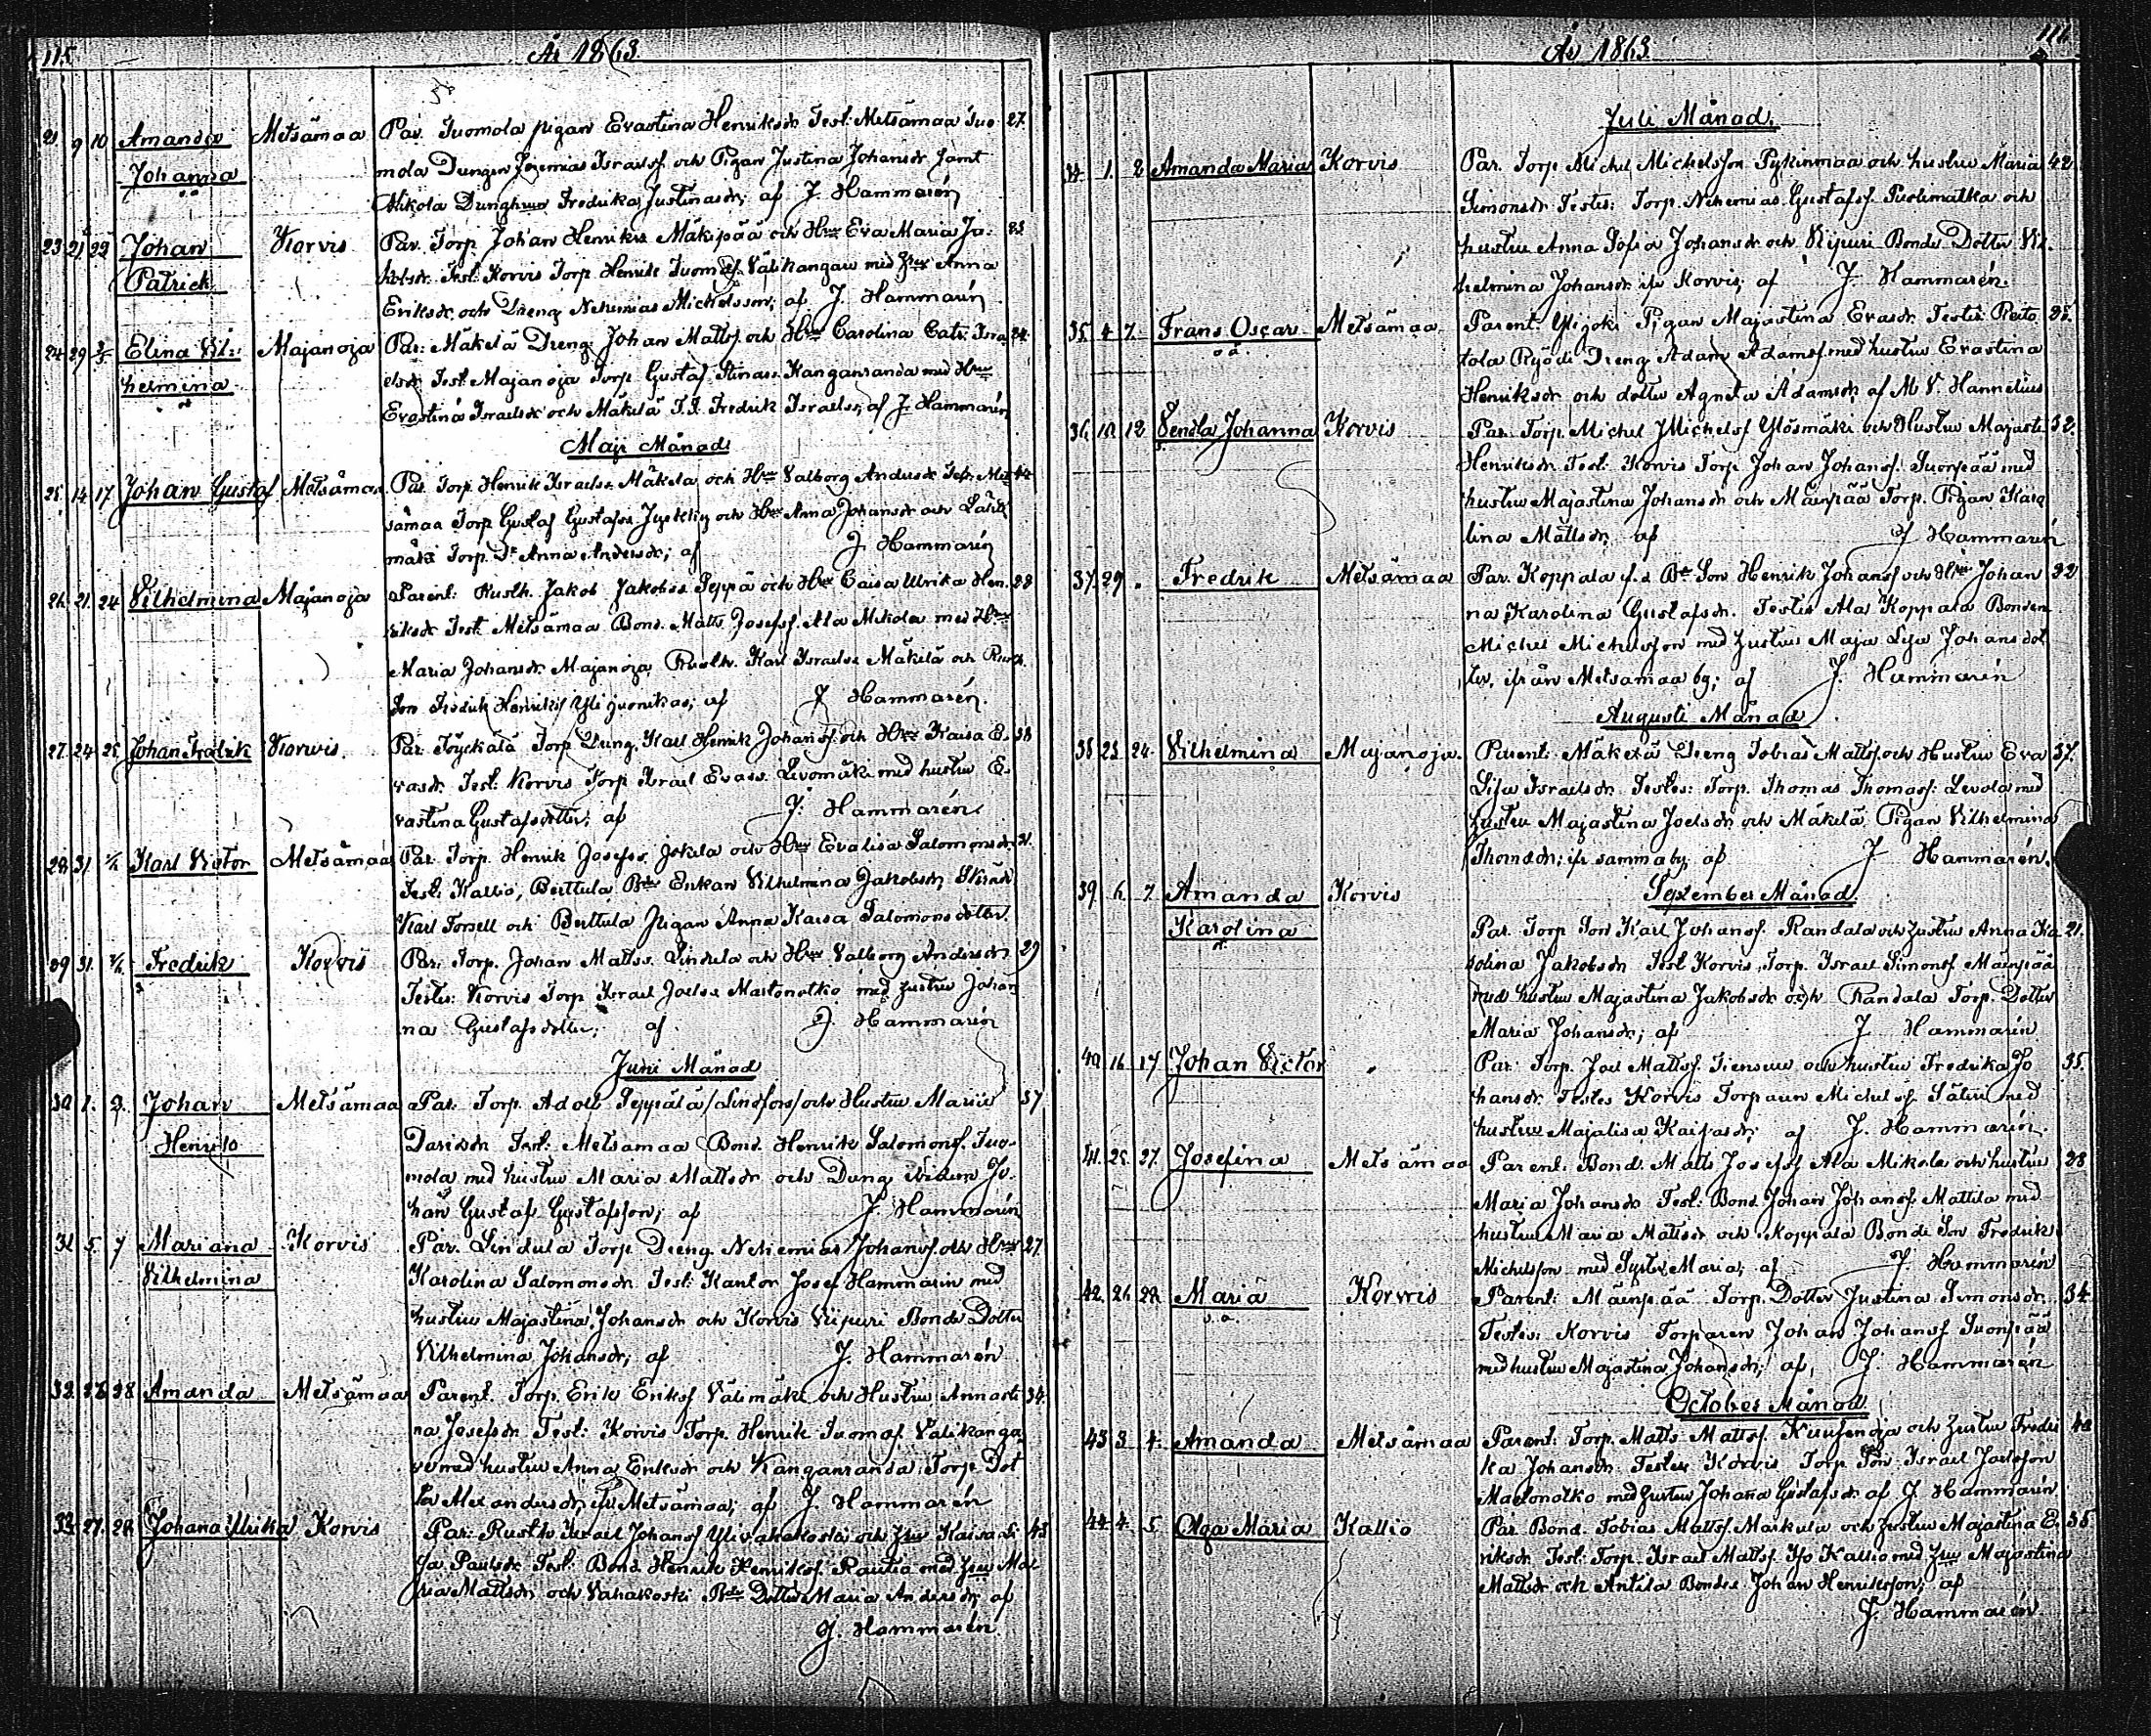 115
År 1863.
21 9 10 Amanda Metsämaa Par. Tuomola pigan Evastina Henriksdr Test: Metsämaa Tuo- 27.
Johanna mola Drengen Jeremias Israelsf och Pigan Justina Johansdr samt
o ä Nikola Drenghuus Fredrika Justinasdr; af J. Hammarén
23 21 22 Johan Korvis Par. Torp. Johan Henriks Mäkipää och Hru Eva Maria Ja- 23
Patrick kobsdr. Test. Korvis Torp. Henrik Tuomasf Välikangau med Hru Anna
Eriksdr. och Dreng Nehemias Michelsson; af J. Hammarén
24 29 3/5 Elina Vil- Majanoja Par: Mäkelä Dreng. Johan Mattsf. och Hru Carolina Catr. Isra- 24.
helmina elsdr. Test. Majanoja Torp. Gustaf Stinass. Kanganranda med Hru
Evastina Israelsdr och Mäkelä Fredrik Israelss, af J. Hammarén
Maji Månad
25. 14 17 Johan Gustaf Metsämaa Par. Torp. Henrik Israelss. Mäkelä och Hru Valborg Andersdr Test. Met- 44
sämaa Torp Gustaf Gustafss och Hru Anna Johansdr och
Torp. Dr Anna Andersdr; af J. Hammarén
26. 21. 24 Vilhelmina Majanoja Parent: Rusth. Jakob Jakobss Seppä och Hru Caisa Ulrika Hen- 28
riksdr Test. Metsämaa Bond. Matts Josefsf. Ala Mikola med Hru
Maria Johansdr. Majanoja Rusth. Karl Israelss Mäkelä och Rusth.
Son Fredrik Henriksf Yli; af J. Hammarén.
27. 24 25 Johan Fredrik Korvis. Par. Töyckälä Torp. Dreng. Karl Henrik Johansf. och Hru Kaisa E- 38
vasdr. Test. Korvis Torp. Israel Evass. Levomäki med hustru E-
vastina Gustafsdotter; af J. Hammarén
28. 31. 1/6 Karl Victor Metsämaa Par. Torp. Henrik Josefss. Jokela och Hru Evalisa Salomonsdr. 21.
Test. Kallio, Berttula Bde Enkan Vilhelmina Jakobsdr,
Karl Forsell och Berttula Pigan Anna Kaisa Salomonsdotter.
29 31. Fredrik Korvis Par. Torp. Johan Mattss. Lindula och Hru Valborg Andersdr. 29
Testes: Korvis Torp Israel Joelss Maatonotko med hustru Johan-
na Gustafsdotter; af J. Hammarén
Juni Månad
30 1. 2. Johan Metsämaa Par. Torp. Adolf Seppälä /Lindfors/ och Hustru Maria 37
Henrik Davidsdr Test: Metsämaa Bond. Henrik Salomonsf. Tuo-
mola med hustru Maria Mattsdr och Dreng ibidem Jo-
han Gustaf Gustafsson; af J. Hammarén
31. 5. 7 Mariana Korvis Par. Lindula Torp Dreng Nehemias Johansf. och Hru 27.
Vilhelmina Karolina Salomonsdr. Test: Kantor Josef Hammarén med
hustru Majastina Johansdr och Korvis Viipuri Bonde Dotter
Vilhelmina Johansdr; af J. Hammarén
32. 26 28. Amanda Metsämaa Parent. Torp. Erik Eriksf Välimäki och Hustru Annasti- 34.
na Josefsdr Test: Korvis Torp. Henrik Tuomasf. Välikanga-
med hustru Anna Eriksdr och Kanganranda Torp. Dot-
ter Alexandersdr; ifr Metsämaa; af J. Hammarén
33. 27. 28. Johana Ulrika Korvis Par: Rusth. Israel Johansf Ylivahakoski och Hru Kaisa Li- 43
sa Paulsdr Test: Bond Henrik Henriksf. Rautia med Hru Ma-
ria Mattsdr och Vahakoski Bde Dotter Maria Andersdr; af
J. Hammarén
År 1863.
Juli Månad.
34. 1. 2 Amanda Maria Korvis Par. Torp. Michel Michelsson Pykinmaa och hustru Maria 42.
Simonsdr Testes: Torp. Nehemias Gustafsf. Puolimatka och
hustru Anna Sofia Johansdr och Viipuri Bonde Dotter Vil-
helmina Johansdr ifr Korvis; af J. Hammarén.
35. 4 7. Frans Oscar Metsämaa Parent: Ylijoki Pigan Majastina Evasdr Testis
o ä. Dreng Adam Adamsf. med hustru Evastina
Henriksdr och dotter Agneta Adamsdr. af M V Hannelius
36. 10. 12 Vendla Johanna Korvis Par. Torp. Michel Michelsf Ylösmäki och Hustru Majasti- 32.
Henriksdr Test: Korvis Torp Johan Johansf. Suonpää med
hustru Majastina Johansdr och Mäenpää Torp. Pigan Karo-
lina Mattsdr, af J. Hammarén
37. 29 Fredrik Metsämaa Par. Koppala f.d. Bde Son Henrik Johansf och Hru Johan- 32
na Karolina Gustafsdr. Testes Ala Koppala Bonden
Michel Michelsson med hustru Maja Lisa Johansdot-
ter, ifrån Metsämaa by; af J. Hammarén
Augusti Månad
38 23. 24. Vilhelmina Majanoja. Parent: Mäkelä Dreng Tobias Mattsf. och Hustru Eva 37.
Lisa Israelsdr Testes: Torp. Thomas Thomasf. Levola med
hustru Majastina Joelsdr. och Mäkelä Pigan Vilhelmina
Thomsdr; ifr samma by; af J. Hammarén.
September Månad
39. 6. 7. Amanda Korvis
Karolina Par. Torp Son Karl Johansf. Randala och hustru Anna Ka- 21.
rolina Jakobsdr Test Korvis, Torp. Israel Simonsf Mäenpää
med hustru Majastina Jakobsdr och Randala Torp. Dotter
Maria Johansdr; af J. Hammarén
40. 16. 17 Johan Victor Par: Torp. Joel Mattsf. Tiensuu och hustru Fredrika Jo- 35.
hansdr. Testes Korvis Torparen Michelsf. Säteri med
hustru Majalisa Kaifasdr; af J. Hammarén.
41. 25. 27. Josefina Metsämaa Parent: Bond. Matts Josefsf Ala Mikola och hustru 28
Maria Johansdr Test: Bond. Johan Johansf. Mattila med
hustru Maria Mattsdr och Koppala Bonde Son Fredrik
Michelsson med Syster Maria; af J. Hammarén
42. 26. 28. Maria Korvis Parent: Mäenpää Torp. Dotter Justina Simonsdr. 34.
o. ä. Testes: Korvis Torparen Johan Johansf Suonpää
med hustru Majastina Johansdr; af, J. Hammarén
October Månad
43 3. 4. Amanda Metsämaa Parent: Torp. Matts Mattsf. Kuusenoja och hustru Fredri- 40
ka Johansdr Testes Korvis Torp Son Israel Joelsson
Maatonotko med hustru Johana Gustafsdr af J. Hammarén
44. 4. 5. Olga Maria Kallio Par. Bond. Tobias Mattsf. Markula och hustru Majastina E- 35.
riksdr. Test: Torp. Israel Mattsf. Iso Kallio med Hru Majastina
Mattsdr och Antila Bonde Johan Henriksson; af
J. Hammarén